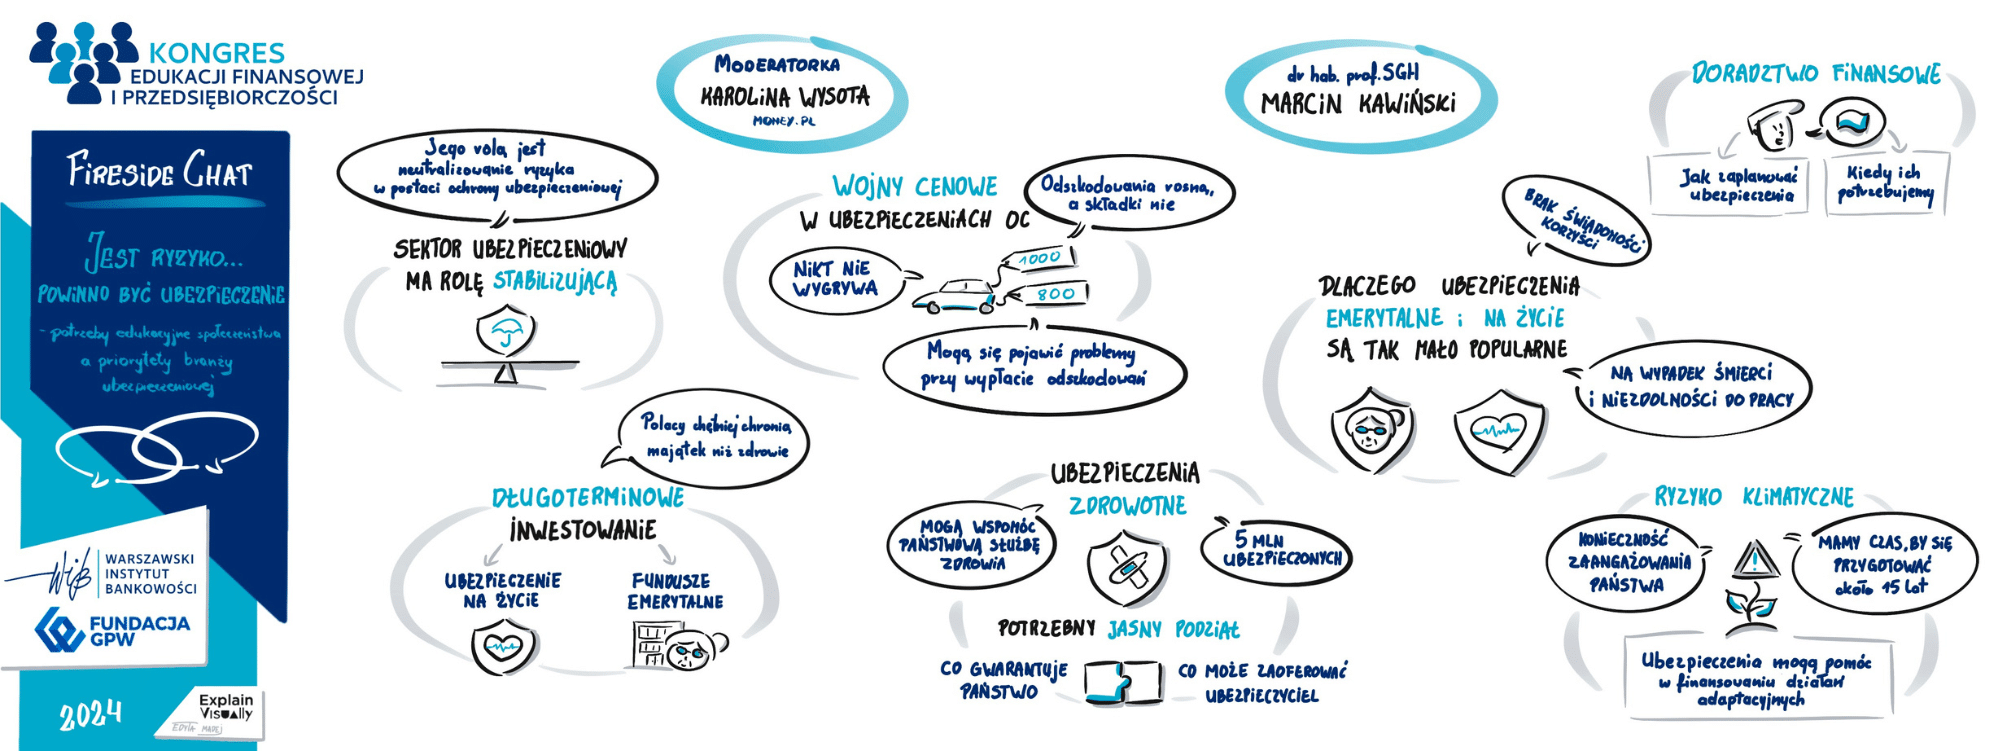 KONGRES
EDUKACJI FINANSOWEJ
I PRZEDSIĘBIORCZOŚCI
FIRESIDE CHAT
JEST RYZYKO...
POWINNO BYĆ UBEZPIECZENIE
- potrzeby edukacyjne społeczeństwa
a priorytety branży
ubezpieczeniowej
WIB
WARSZAWSKI
INSTYTUT
BANKOWOŚCI
FUNDACJA
GPW
2024
Explain
Visually
EDYTA MADEJ
MODERATORKA
KAROLINA WYSOTA
MONEY.PL
dr hab. prof. SGH
MARCIN KAWIŃSKI
Jego rolą jest
neutralizowanie ryzyka
w postaci ochrony ubezpieczeniowej
SEKTOR UBEZPIECZENIOWY
MA ROLĘ STABILIZUJĄCĄ
WOJNY CENOWE
W UBEZPIECZENIACH OC
Odszkodowania rosną,
a składki nie
NIKT NIE
WYGRYWA
1000
800
Mogą się pojawić problemy
przy wypłacie odszkodowań
DORADZTWO FINANSOWE
Jak zaplanować
ubezpieczenia
Kiedy ich
potrzebujemy
BRAK ŚWIADOMOŚCI
KORZYŚCI
DLACZEGO UBEZPIECZENIA
EMERYTALNE i NA ŻYCIE
SĄ TAK MAŁO POPULARNE
NA WYPADEK ŚMIERCI
i NIEZDOLNOŚCI DO PRACY
Polacy chętniej chronią
majątek niż zdrowie
DŁUGOTERMINOWE
INWESTOWANIE
UBEZPIECZENIE
NA ŻYCIE
FUNDUSZE
EMERYTALNE
UBEZPIECZENIA
ZDROWOTNE
MOGĄ WSPOMÓC
PAŃSTWOWĄ SŁUŻBĘ
ZDROWIA
5 MLN
UBEZPIECZONYCH
POTRZEBNY JASNY PODZIAŁ
CO GWARANTUJE
PAŃSTWO
CO MOŻE ZAOFEROWAĆ
UBEZPIECZYCIEL
RYZYKO KLIMATYCZNE
KONIECZNOŚĆ
ZAANGAŻOWANIA
PAŃSTWA
MAMY CZAS, BY SIĘ
PRZYGOTOWAĆ
około 15 lat
Ubezpieczenia mogą pomóc
w finansowaniu działań
adaptacyjnych